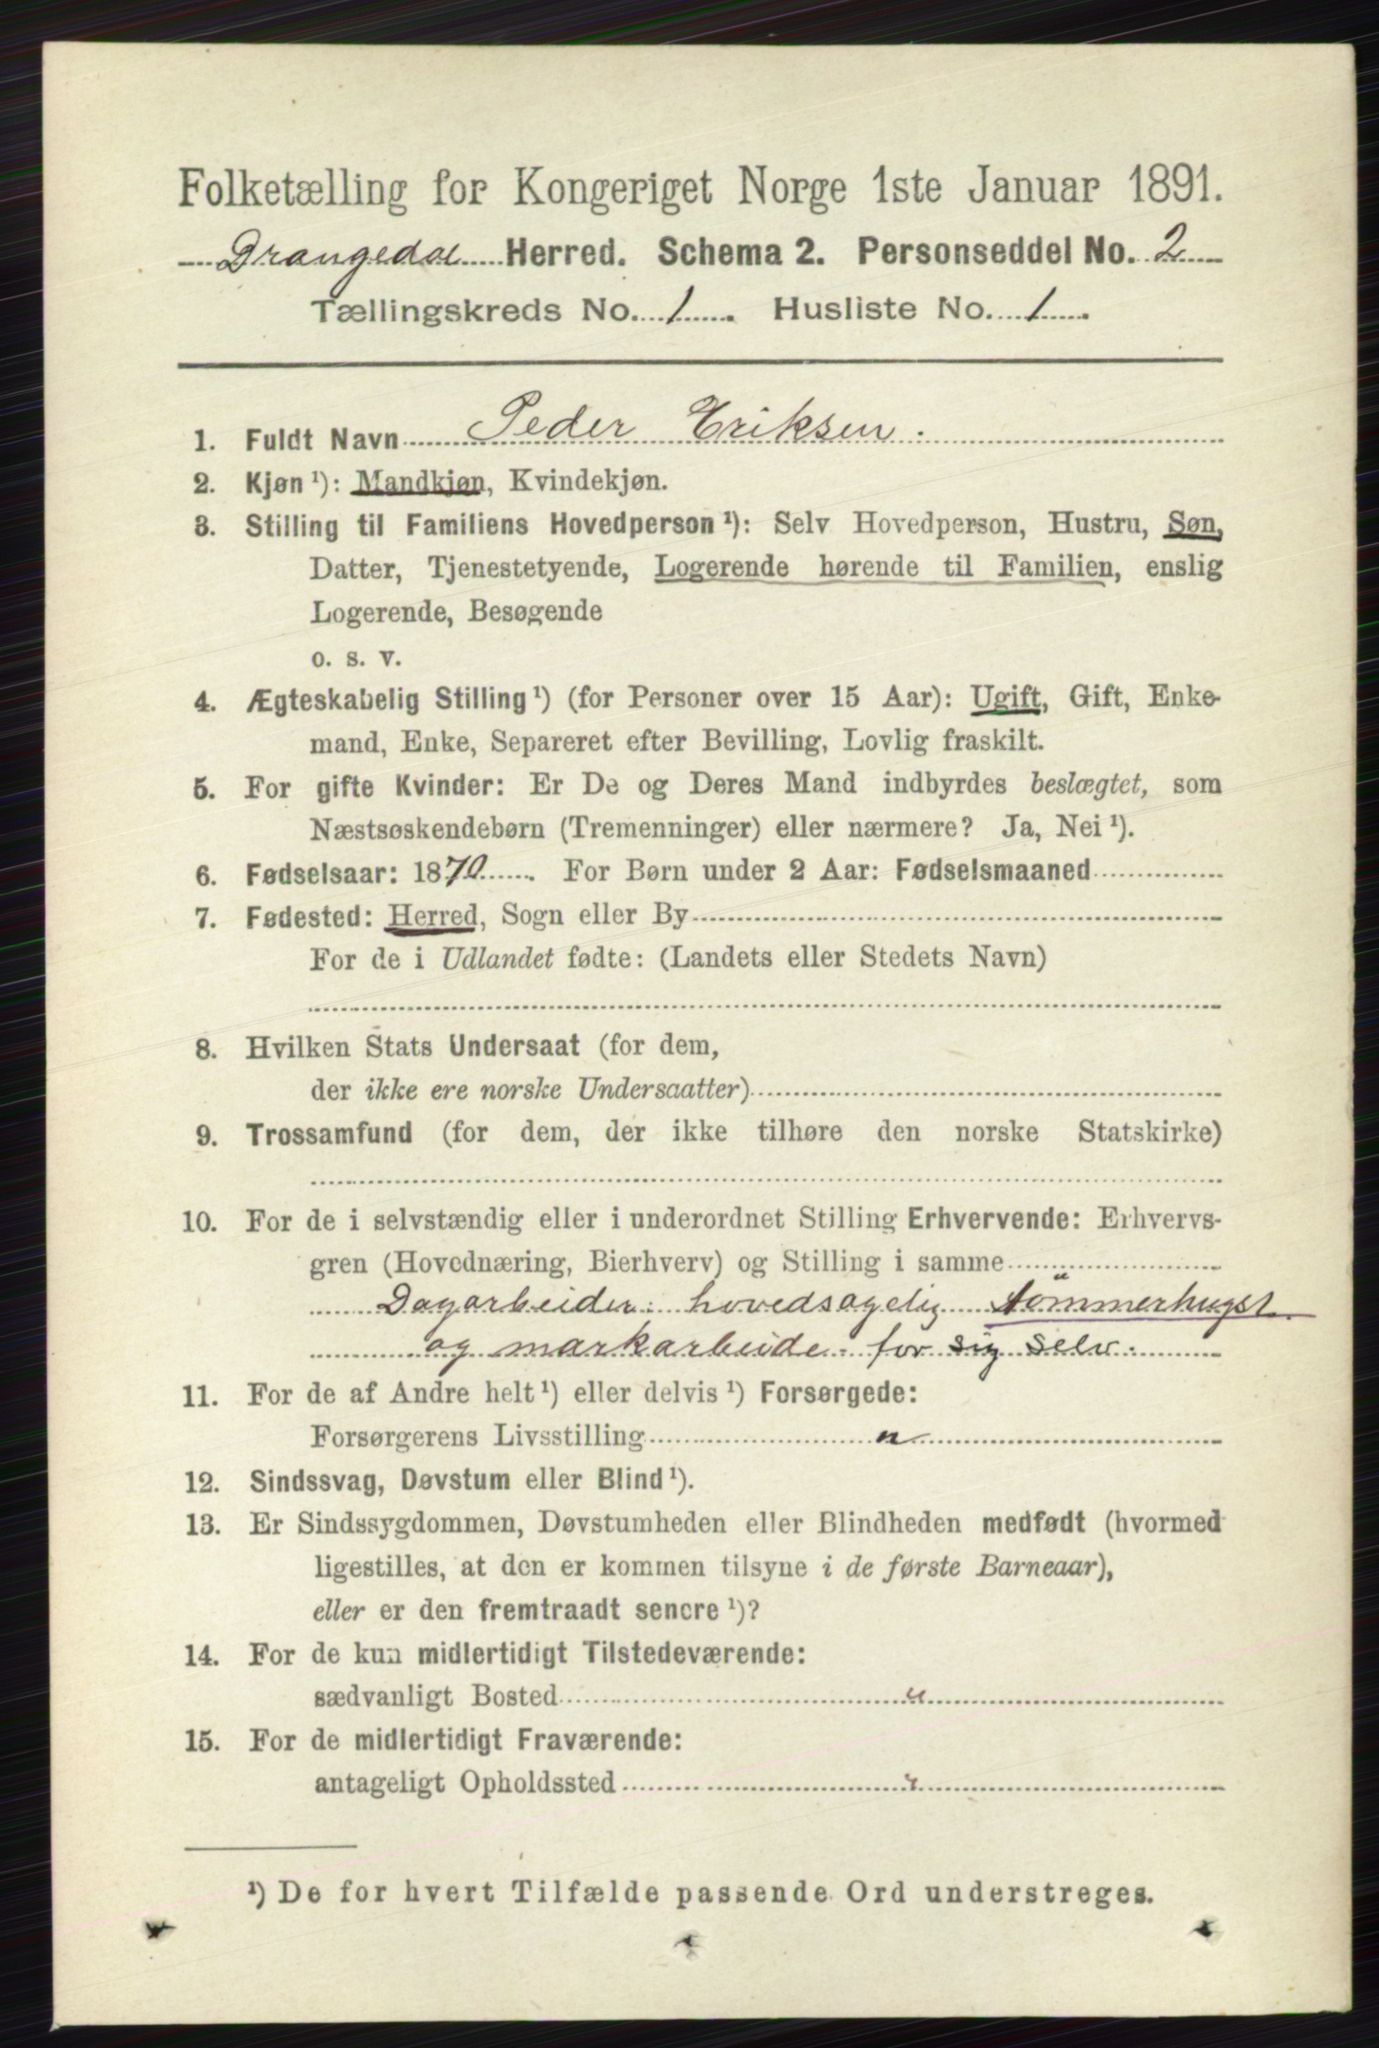 Folketælling for Kongeriget Norge 1ste Januar 1891.
Drangedal Herred. Schema 2. Personseddel No. 2
Tællingskreds No. 1. Husliste No. 1.
1. Fuldt Navn Peder Eriksen.
2. Kjøn ¹): Mandkjøn, Kvindekjøn.
3. Stilling til Familiens Hovedperson ¹): Selv Hovedperson, Hustru, Søn,
Datter, Tjenestetyende, Logerende hørende til Familien, enslig
Logerende, Besøgende
o. s. v.
4. Ægteskabelig Stilling ¹) (for Personer over 15 Aar): Ugift, Gift, Enke-
mand, Enke, Separeret efter Bevilling, Lovlig fraskilt.
5. For gifte Kvinder: Er De og Deres Mand indbyrdes beslægtet, som
Næstsøskendebørn (Tremenninger) eller nærmere? Ja, Nei ¹).
6. Fødselsaar: 1870. For Børn under 2 Aar: Fødselsmaaned
7. Fødested: Herred, Sogn eller By
For de i Udlandet fødte: (Landets eller Stedets Navn)
8. Hvilken Stats Undersaat (for dem,
der ikke ere norske Undersaatter)
9. Trossamfund (for dem, der ikke tilhøre den norske Statskirke)
10. For de i selvstændig eller i underordnet Stilling Erhvervende: Erhvervs-
gren (Hovednæring, Bierhverv) og Stilling i samme
Dagarbeider: hovedsagelig tömmerhugst
og markarbeide for sig selv.
11. For de af Andre helt ¹) eller delvis ¹) Forsørgede:
Forsørgerens Livsstilling "
12. Sindssvag, Døvstum eller Blind ¹).
13. Er Sindssygdommen, Døvstumheden eller Blindheden medfødt (hvormed
ligestilles, at den er kommen tilsyne i de første Barneaar),
eller er den fremtraadt senere ¹)?
14. For de kun midlertidigt Tilstedeværende:
sædvanligt Bosted "
15. For de midlertidigt Fraværende:
antageligt Opholdssted "
¹) De for hvert Tilfælde passende Ord understreges.